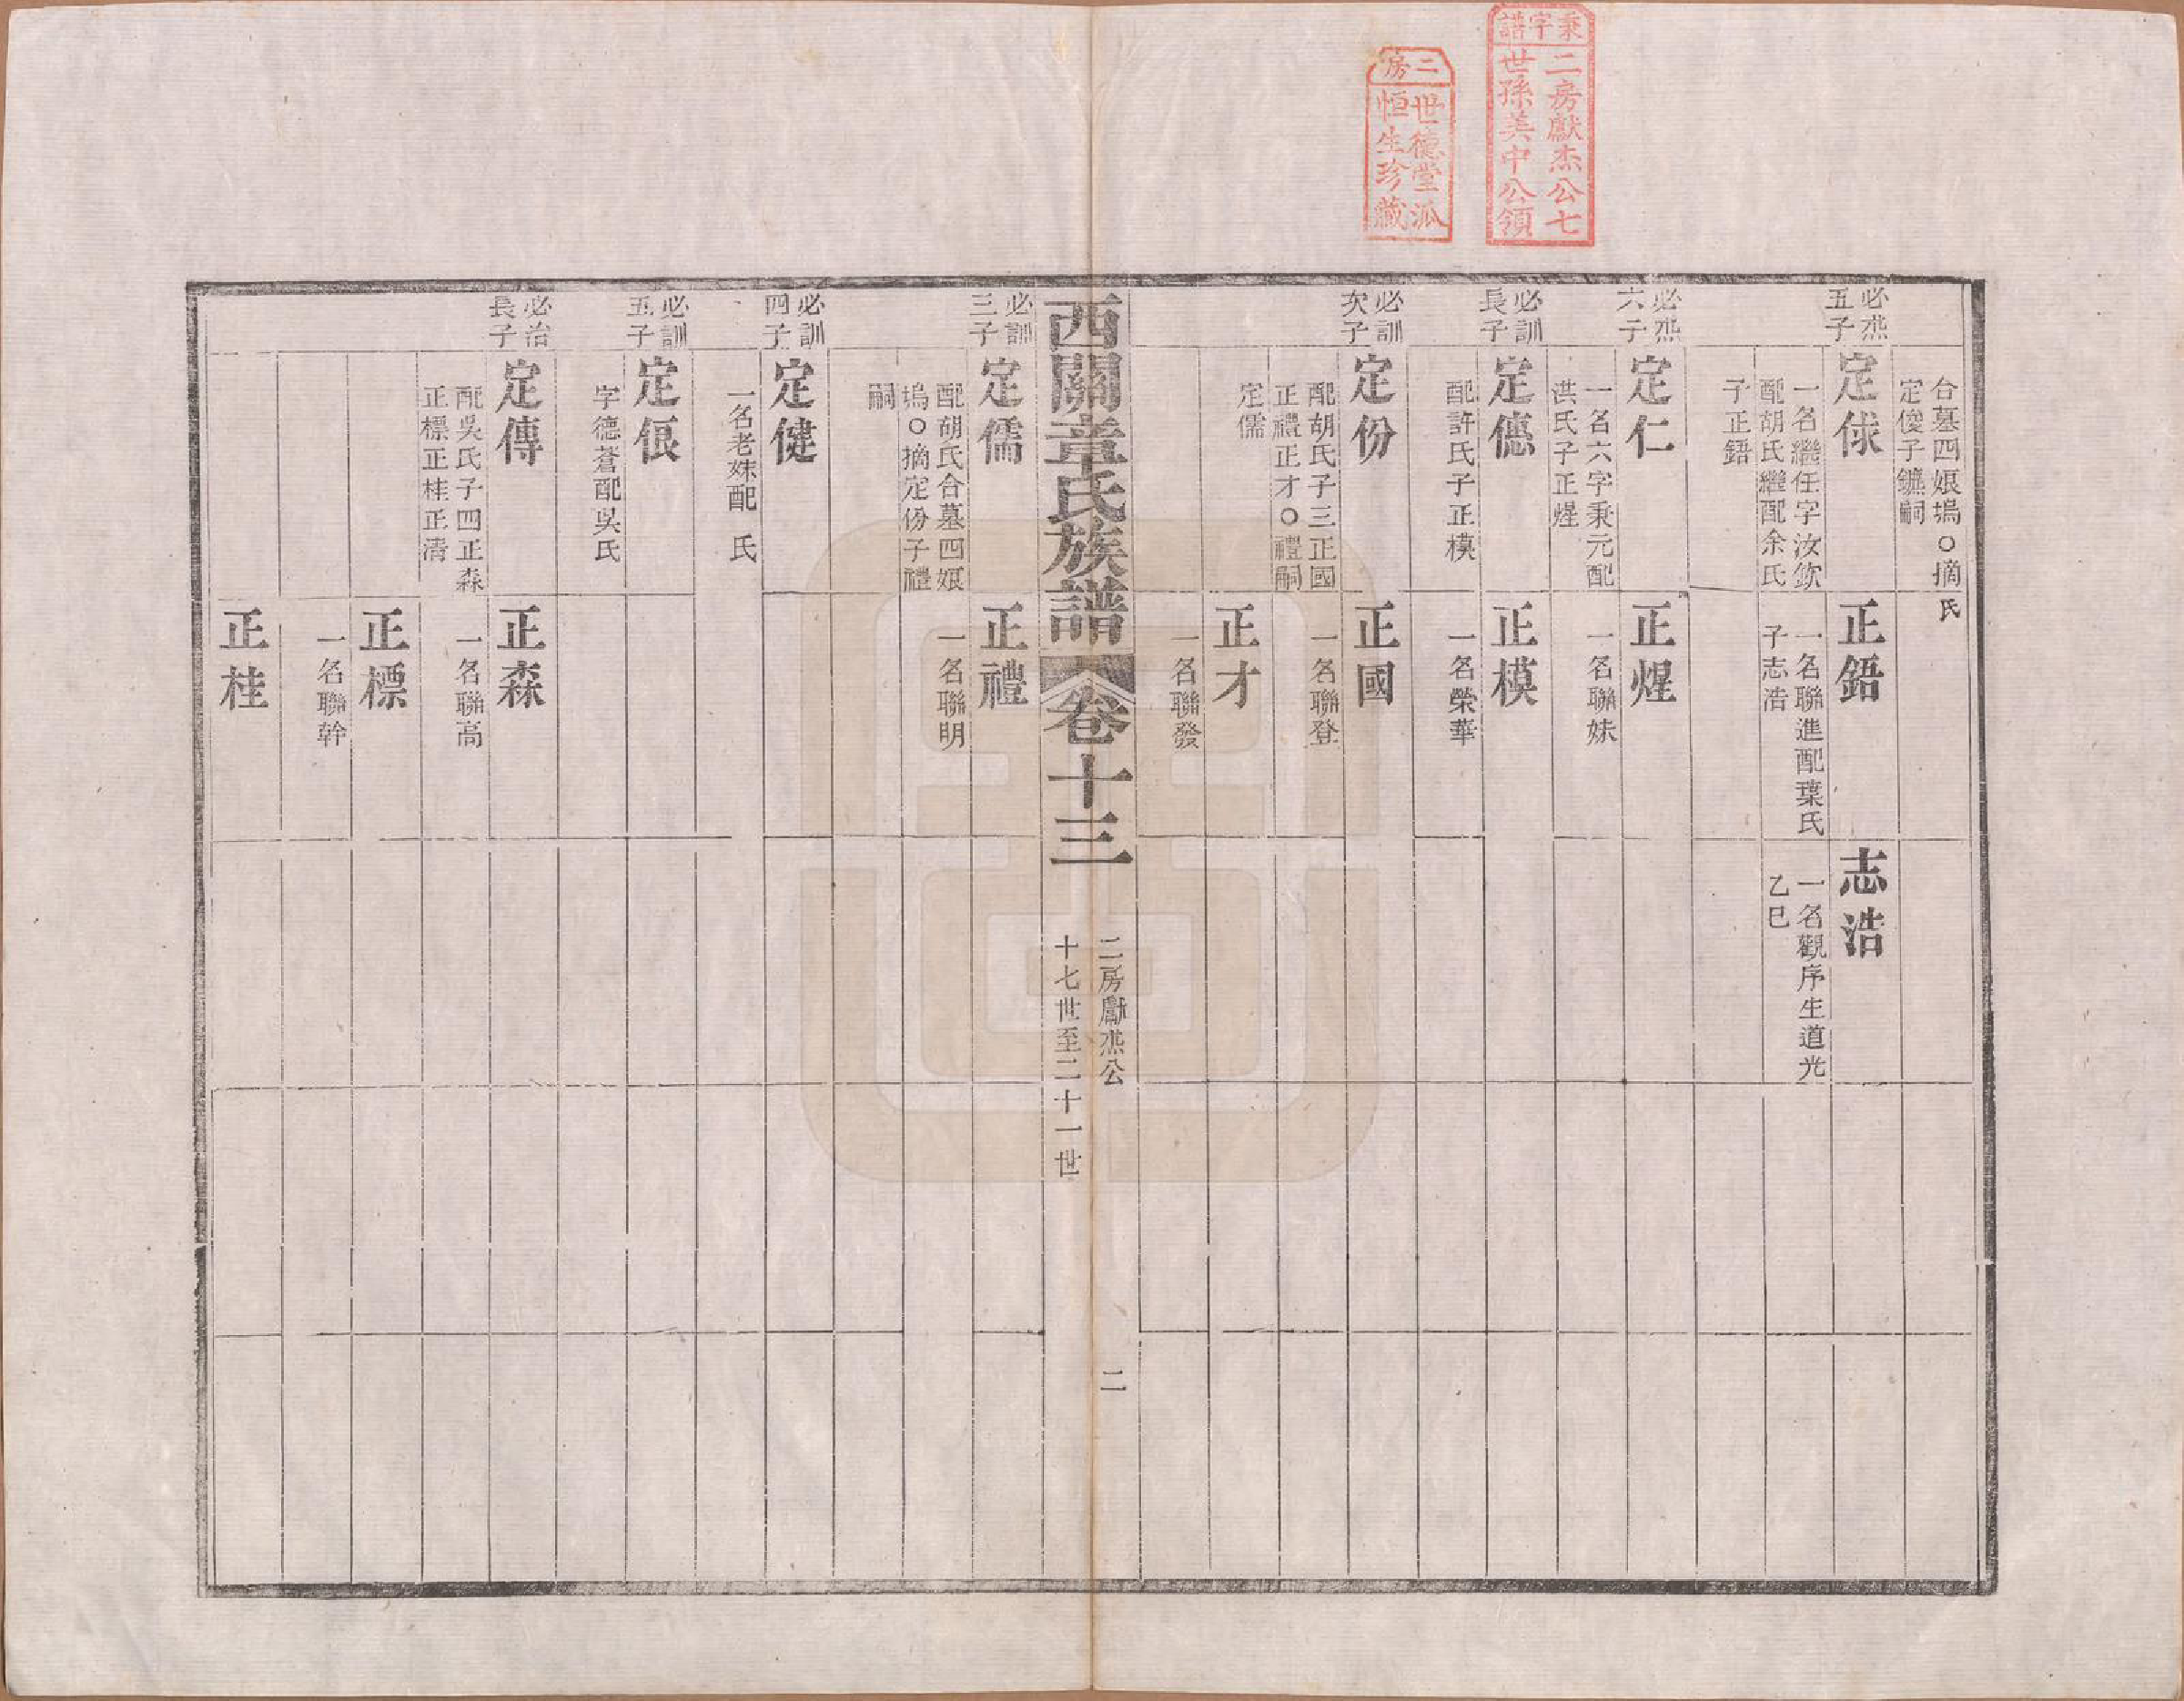 秉字譜
二房獻杰公七
世孫美中公領
二房
世德堂派
恒生珍藏
合墓四娘塢○摘
定俊子鑣嗣
氏
必烝
五子
定俅
一名繼任字汝欽
配胡氏繼配余氏
子正鋙
正鋙
一名聯進配葉氏
子志浩
志浩
一名觀序生道光
乙巳
必烝
六子
定仁
一名六字秉元配
洪氏子正煋
正煋
一名聯妹
必訓
長子
定僡
配許氏子正模
正模
一名榮華
必訓
次子
定份
配胡氏子三正國
正禮正才○禮嗣
定儒
正國
一名聯登
正才
一名聯發
西關章氏族譜
卷十三
二房獻烝公
十七世至二十一世
二
必訓
三子
定儒
配胡氏合墓四娘
塢○摘定份子禮
嗣
正禮
一名聯明
必訓
四子
定健
一名老妹配 氏
必訓
五子
定佷
字德蒼配吳氏
必治
長子
定傳
配吳氏子四正森
正標正桂正清
正森
一名聯高
正標
一名聯幹
正桂